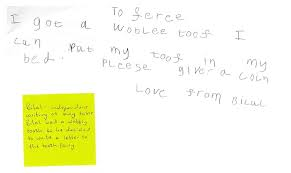 To ferce
I got a WobLee toof I
can Put my toof in my
bed. PLeese give a coin
Love from Bilal
Bilal - independent
writing at
Bilal had a wobbly
tooth so he decided
to write a letter to
the tooth fairy